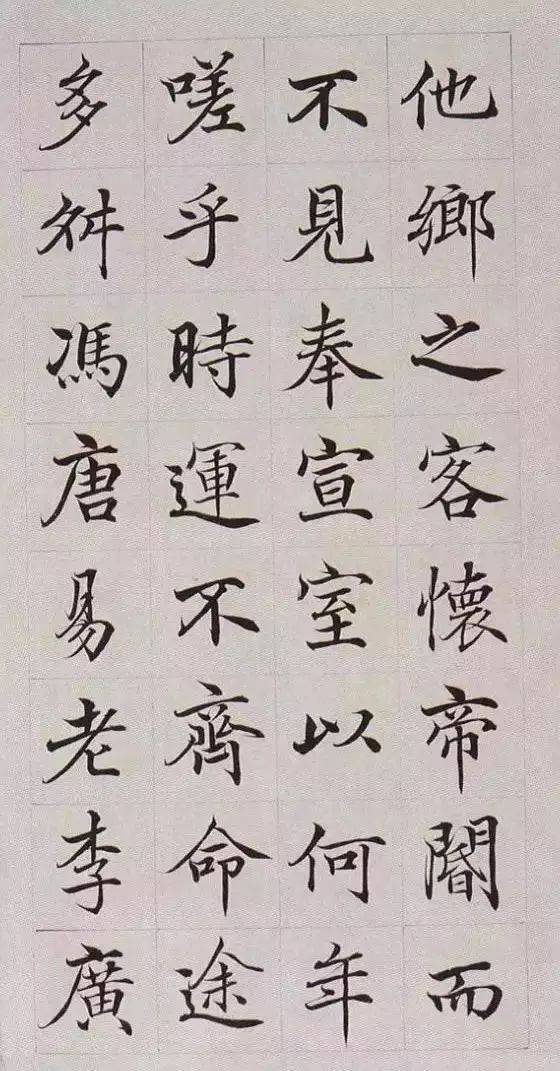 他鄉之客懷帝閽而
不見奉宣室以何年
嗟乎時運不齊命途
多舛馮唐易老李廣